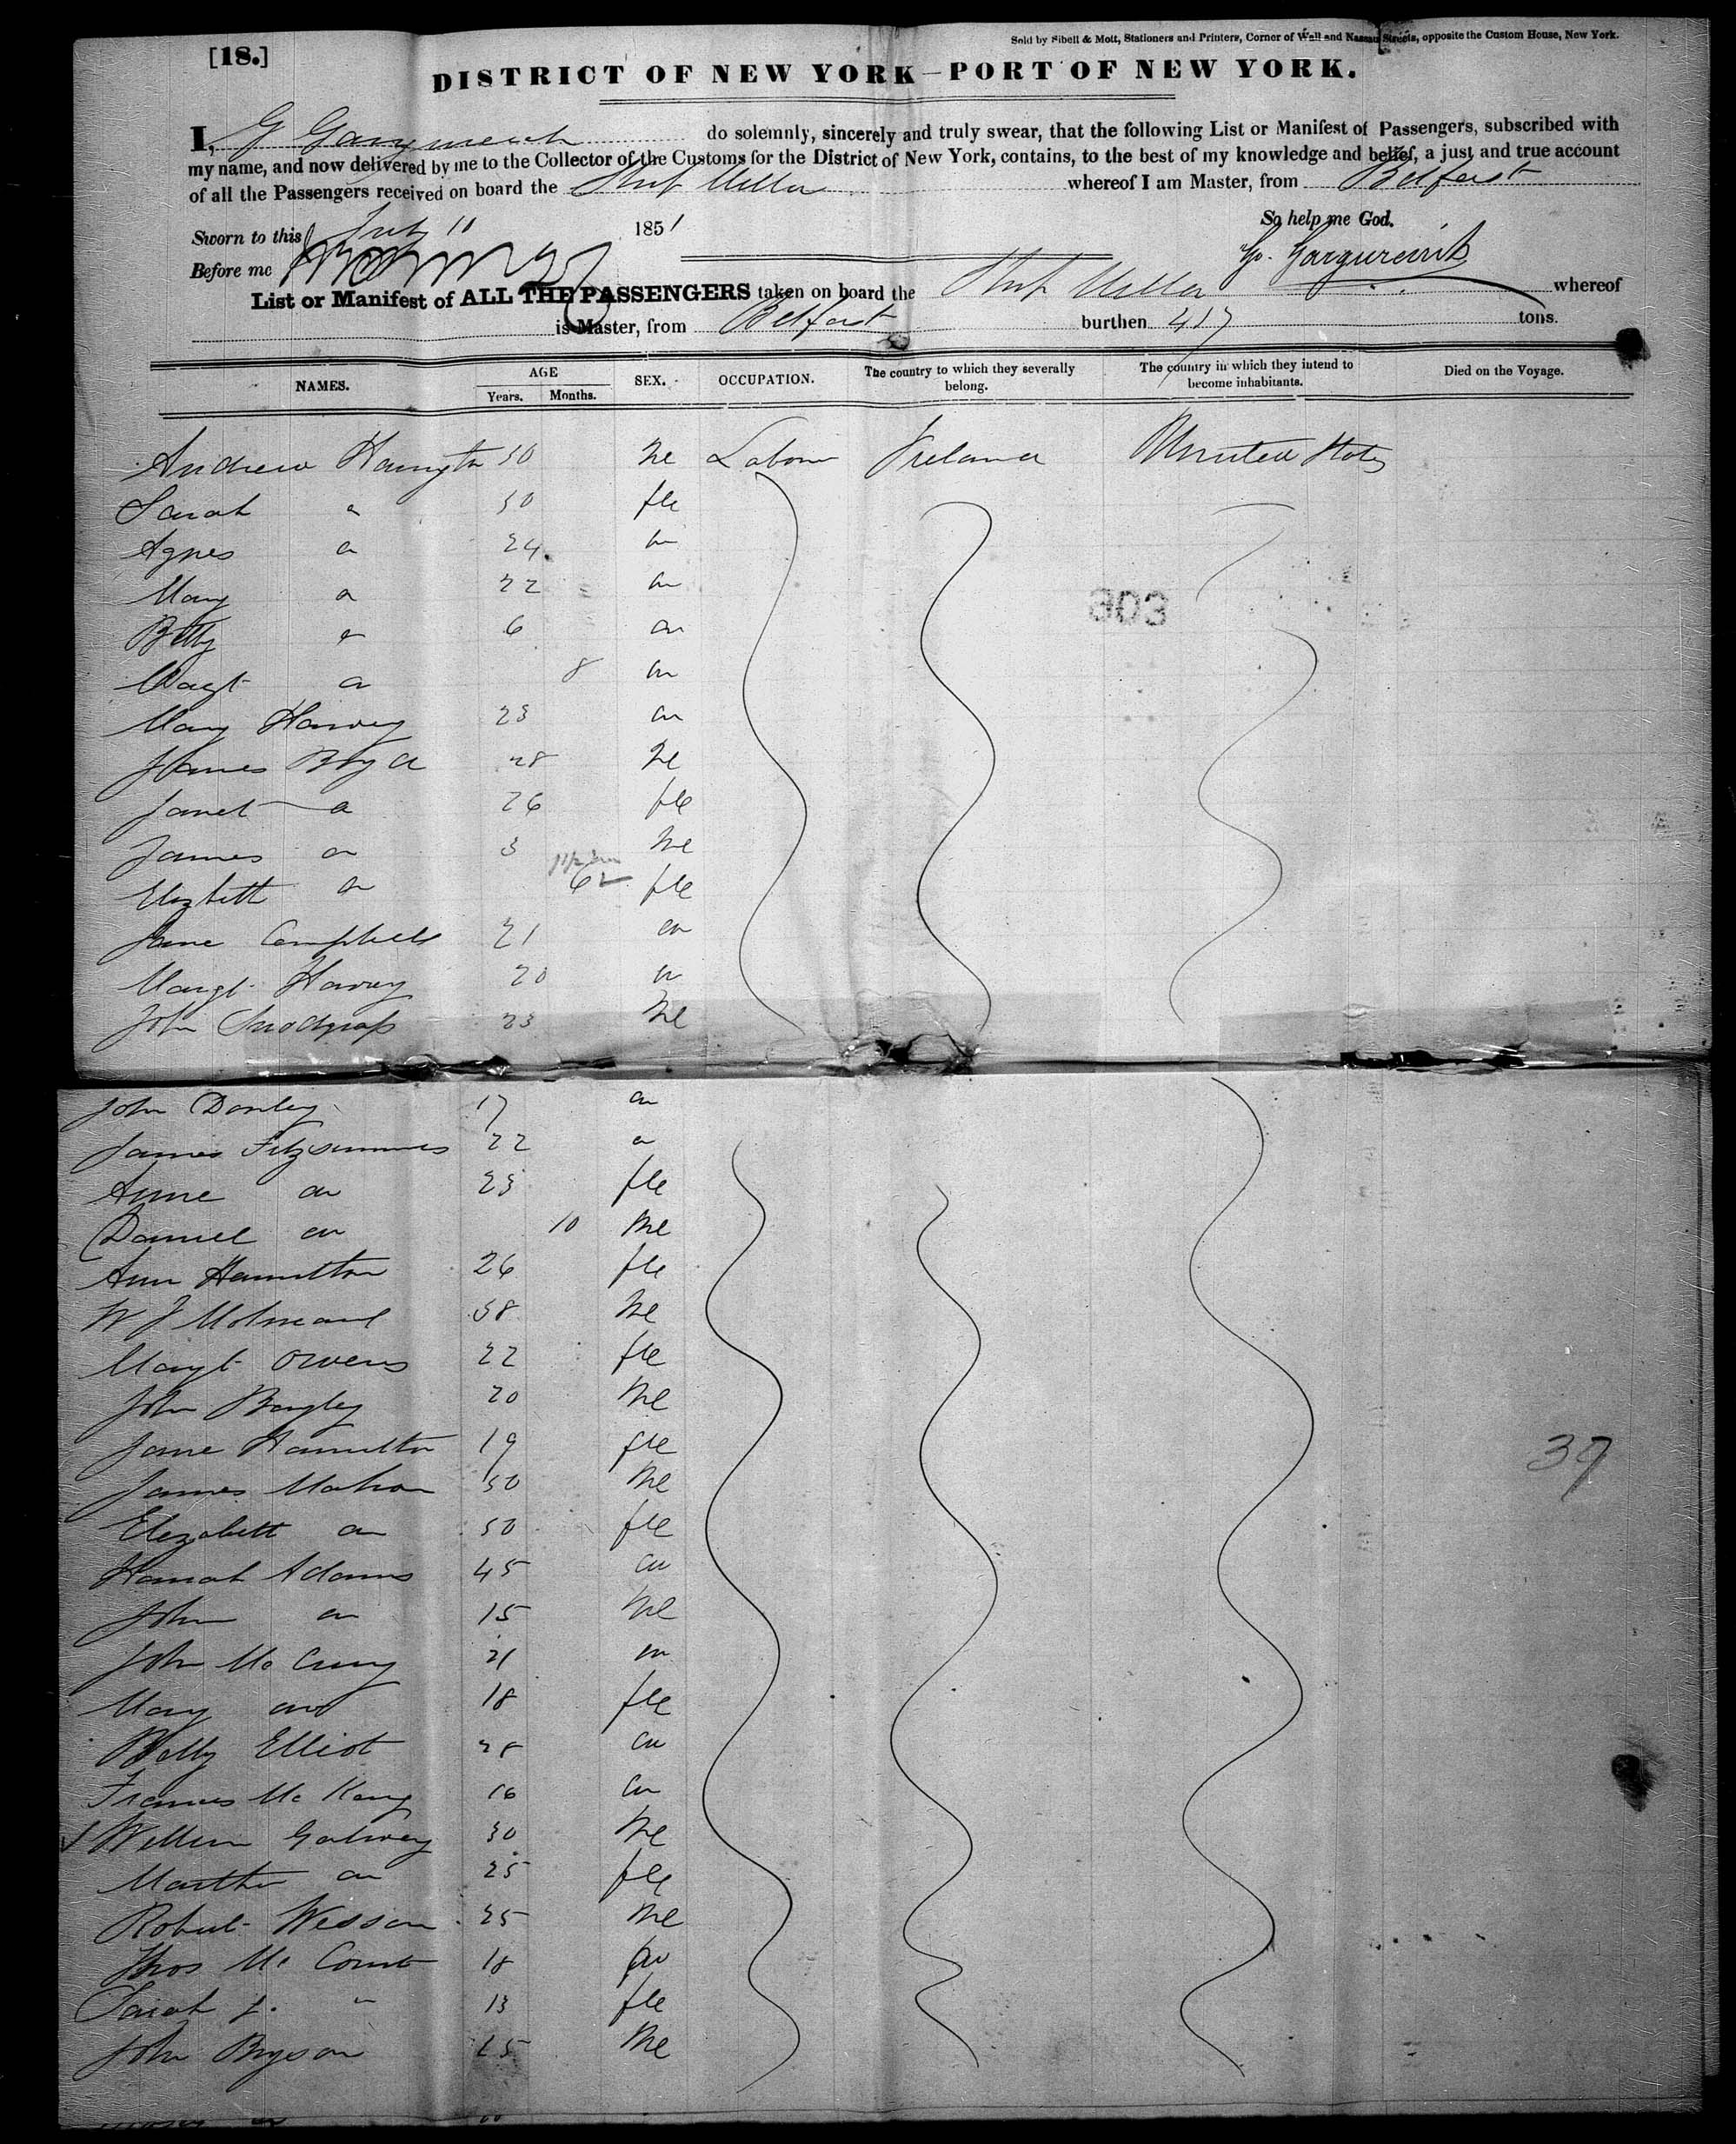 [18.]
Sold by Sibell & Mott, Stationers and Printers, Corner of Wall and Nassau Streets, opposite the Custom House, New York.
DISTRICT OF NEW YORK—PORT OF NEW YORK.
I, G do solemnly, sincerely and truly swear, that the following List or Manifest of Passengers, subscribed with
my name, and now delivered by me to the Collector of the Customs for the District of New York, contains, to the best of my knowledge and belief, a just and true account
of all the Passengers received on board the Ship whereof I am Master, from Belfast
So help me God.
Sworn to this July 11 1851
Before me
List or Manifest of ALL THE PASSENGERS taken on board the Ship whereof
is Master, from Belfast burthen 417 tons.
NAMES. AGE Years. Months. SEX. OCCUPATION. The country to which they severally belong. The country in which they intend to become inhabitants. Died on the Voyage.
Andrew 50 Me Labour Ireland United States
Sarah a 50 fle
Agnes a 24 a
Mary a 22 a
Betty a 6 a
Magt a 8 a
303
Mary Harvey 23 a
James Boyd 28 Me
Janet a 26 fle
James a 3 Me
Elizbeth a 6 fle
Jane Campbell 21 a
Margt Harvey 20 a
John Snodgrass 23 Me
John Donley 17 a
James Fitzsimmons 22 a
Anne a 23 fle
Daniel a 10 Me
Ann Hamilton 26 fle
W J 38 Me
Margt Owens 22 fle
John Bagley 20 Me
Jane Hamilton 19 fle
37
James Mahon 50 Me
Elezabett a 50 fle
Hanah Adams 45 a
John a 15 Me
John Mc 21 a
Mary a 18 fle
Betty Elliot 28 a
Frances Mc 16 a
William Galway 30 Me
Martha a 25 fle
Robert Wesson 25 Me
Thos Mc Court 18
Sarah J. " 13 fle
John Bryson 25 Me